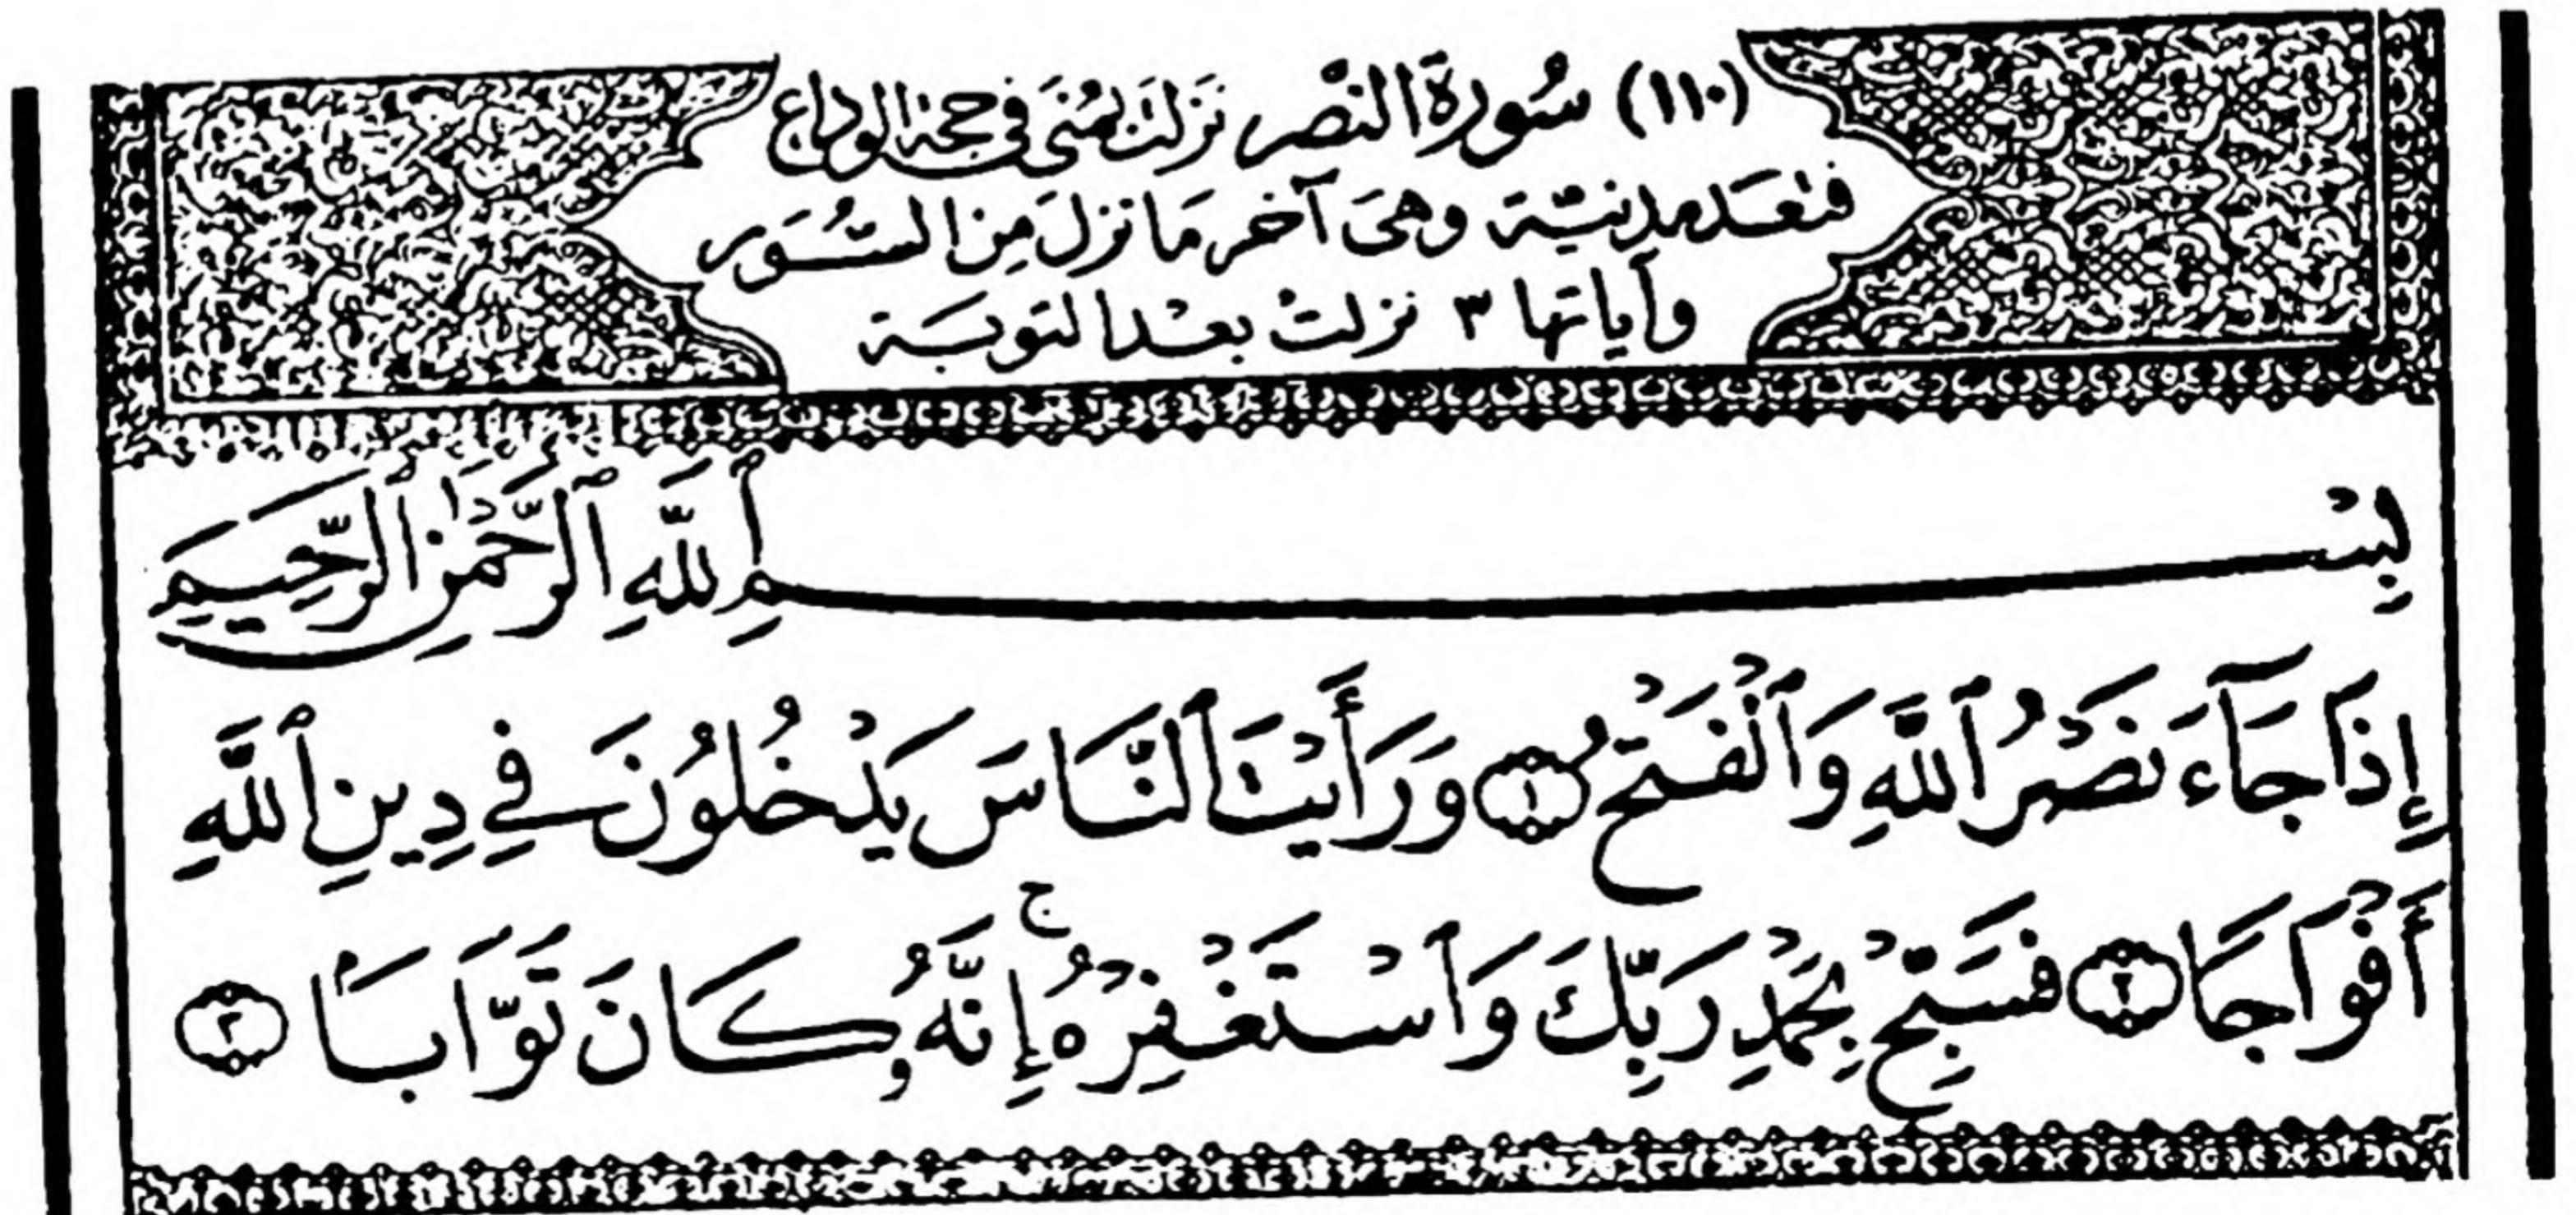 (١١٠) سُورَةُ النَّصْر نَزَلَتْ بِمِنًى فِى حَجَّةِ الوَدَاع
فتُعَدّ مدنيَّة وهىَ آخر مَا نزلَ مِنَ السُّوَر
وآياتها ٣ نزلتْ بعْدَ التوبَة
بِسْمِ ٱللَّهِ ٱلرَّحْمَٰنِ ٱلرَّحِيمِ
إِذَا جَآءَ نَصْرُ ٱللَّهِ وَٱلْفَتْحُ ١ وَرَأَيْتَ ٱلنَّاسَ يَدْخُلُونَ فِي دِينِ ٱللَّهِ
أَفْوَاجًا ٢ فَسَبِّحْ بِحَمْدِ رَبِّكَ وَٱسْتَغْفِرْهُ ۚ إِنَّهُۥ كَانَ تَوَّابًۢا ٣